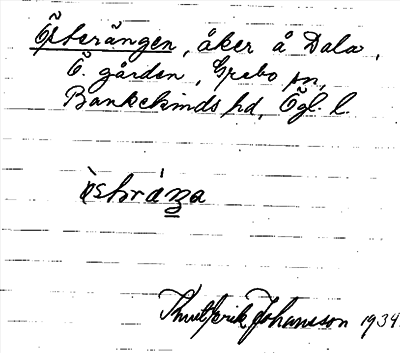 Österängen, åker å Dala,
Ö. gården, Grebo sn,
Bankekinds hd, Ögl. l.
Knut Erik Johansson 1934.